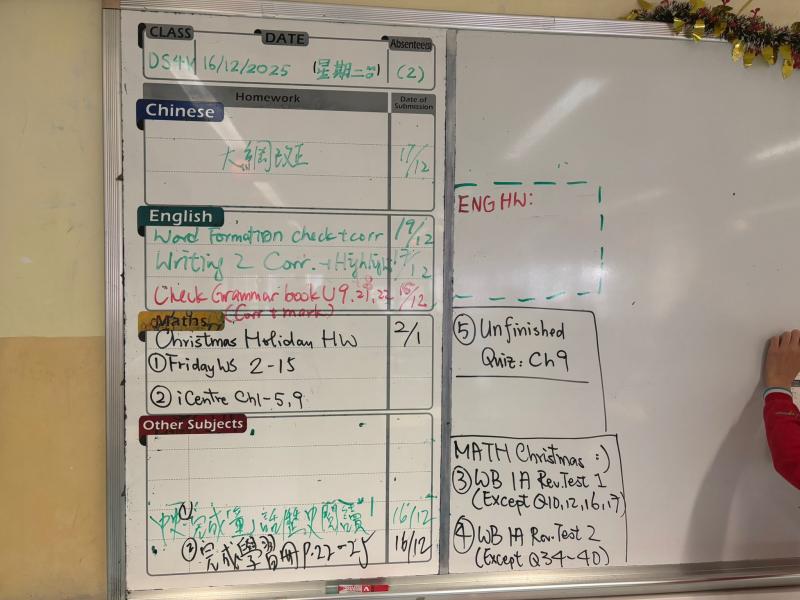 CLASS DATE Absentees
16/12/2025 (星期二) (2)
Homework Date of Submission
Chinese
大綱改正 17/12
English
Word Formation check + corr 19/12
Writing 2 Corr. → Highlight 17/12
Check Grammar book U9, 21, 22 15/12
(Corr + mark)
Maths
Christmas Holiday HW 2/1
① Friday WS 2-15
② iCentre Ch1-5, 9
Other Subjects
① 中史完成童話歷史閱讀 16/12
② 完成學習冊 P.22-25 16/12
ENG HW:
⑤ Unfinished
Quiz: Ch9
MATH Christmas :)
③ WB 1A Rev. Test 1
(Except Q10, 12, 16, 17)
④ WB 1A Rev. Test 2
(Except Q34~40)